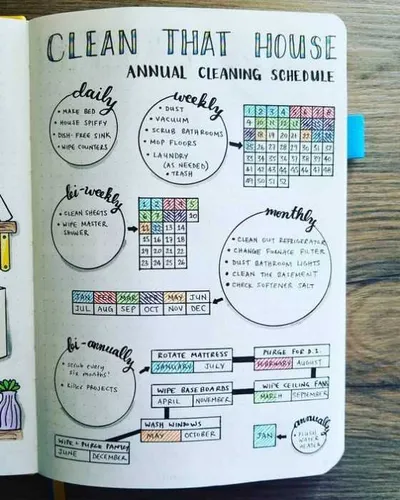 CLEAN THAT HOUSE
ANNUAL CLEANING SCHEDULE
daily
• MAKE BED
• HOUSE SPIFFY
• DISH-FREE SINK
• WIPE COUNTERS
weekly
• DUST
• VACUUM
• SCRUB BATHROOMS
• MOP FLOORS
• LAUNDRY
(AS NEEDED)
• TRASH
1 2 3 4 5 6 7 8
9 10 11 12 13 14 15 16
17 18 19 20 21 22 23 24
25 26 27 28 29 30 31 32
33 34 35 36 37 38 39 40
41 42 43 44 45 46 47 48
49 50 51 52
bi-weekly
• CLEAN SHEETS
• WIPE MASTER
SHOWER
1 2 3 4 5
6 7 8 9 10
11 12 13 14
15 16 17 18
19 20 21 22
23 24 25 26
monthly
• CLEAN OUT REFRIGERATOR
• CHANGE FURNACE FILTER
• DUST BATHROOM LIGHTS
• CLEAN THE BASEMENT
• CHECK SOFTENER SALT
JAN FEB MAR APR MAY JUN
JUL AUG SEP OCT NOV DEC
bi-annually
• Scrub every
six months!
• Killer PROJECTS
ROTATE MATTRESS
JANUARY JULY
PURGE FOR D.I.
FEBRUARY AUGUST
WIPE BASEBOARDS
APRIL NOVEMBER
WIPE CEILING FANS
MARCH SEPTEMBER
WASH WINDOWS
MAY OCTOBER
WIPE + PURGE PANTRY
JUNE DECEMBER
annually
JAN
• FLUSH
WATER
HEATER